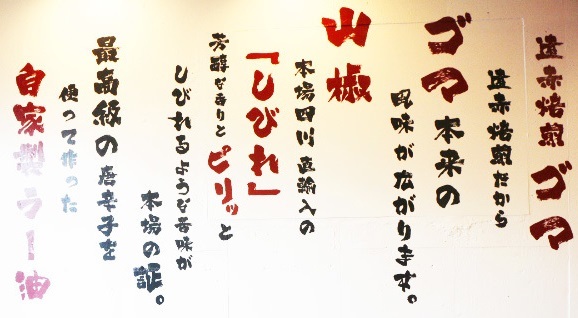 遠赤焙煎ゴマ
遠赤焙煎だから
ゴマ本来の
風味が広がります。
山椒
本場四川直輸入の
「しびれ」
芳醇な香りとピリッと
しびれるような舌味が
本場の証。
最高級の唐辛子を
使って作った
自家製ラー油